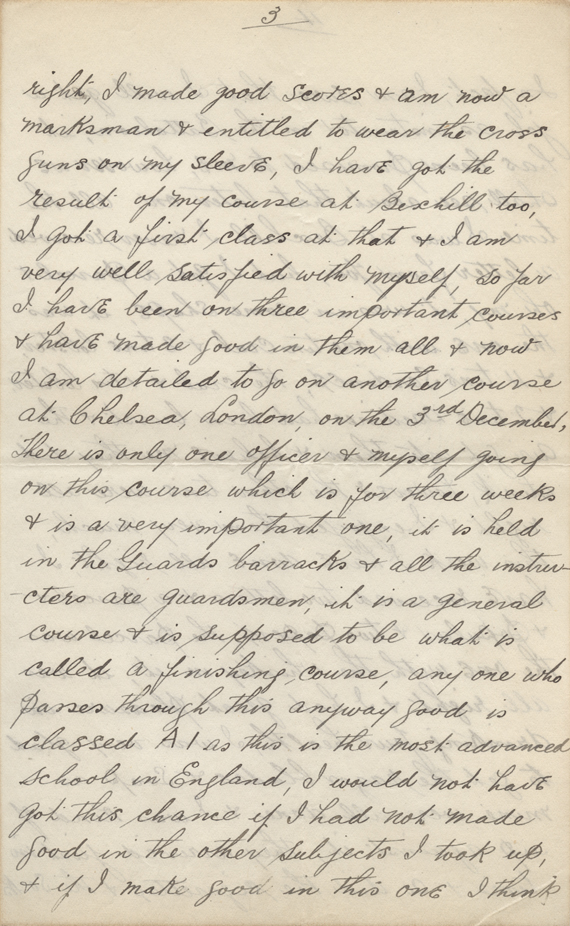 3
right, I made good scores & am now a
marksman & entitled to wear the cross
guns on my sleeve, I have got the
result of my course at Bexhill too,
I got a first class at that & I am
very well satisfied with myself, so far
I have been on three important courses
& have made good in them all & now
I am detailed to go on another course
at Chelsea, London, on the 3rd December,
There is only one officer & myself going
on this course which is for three weeks
& is a very important one, it is held
in the Guards barracks & all the instru-
-cters are guardsmen, it is a general
course & is supposed to be what is
called a finishing course, any one who
passes through this anyway good is
classed A1 as this is the most advanced
school in England, I would not have
got this chance if I had not made
good in the other subjects I took up,
& if I make good in this one I think